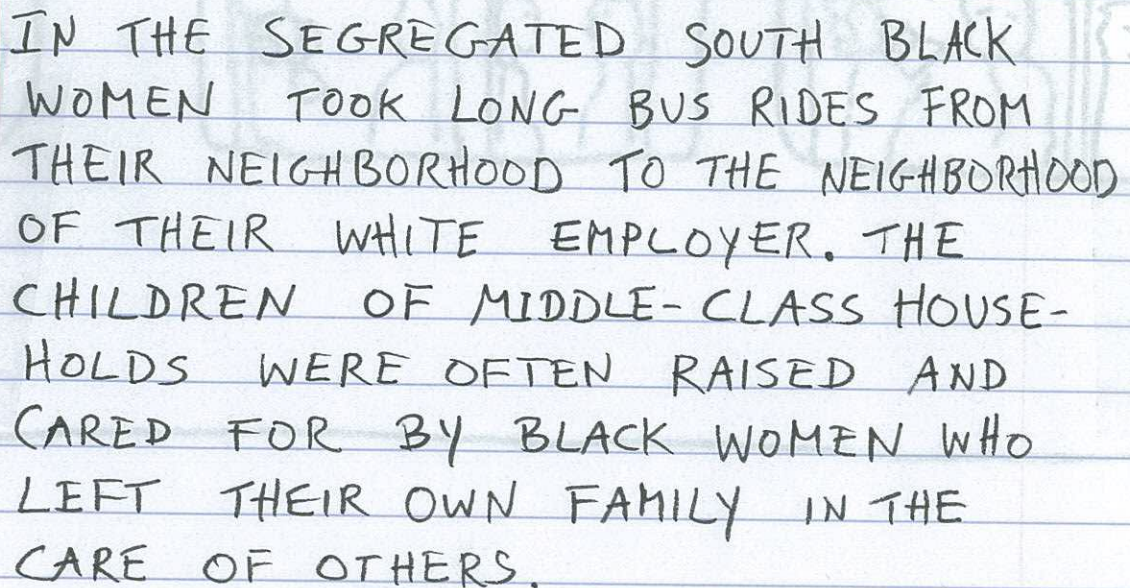 IN THE SEGREGATED SOUTH BLACK
WOMEN TOOK LONG BUS RIDES FROM
THEIR NEIGHBORHOOD TO THE NEIGHBORHOOD
OF THEIR WHITE EMPLOYER. THE
CHILDREN OF MIDDLE-CLASS HOUSE-
HOLDS WERE OFTEN RAISED AND
CARED FOR BY BLACK WOMEN WHO
LEFT THEIR OWN FAMILY IN THE
CARE OF OTHERS.